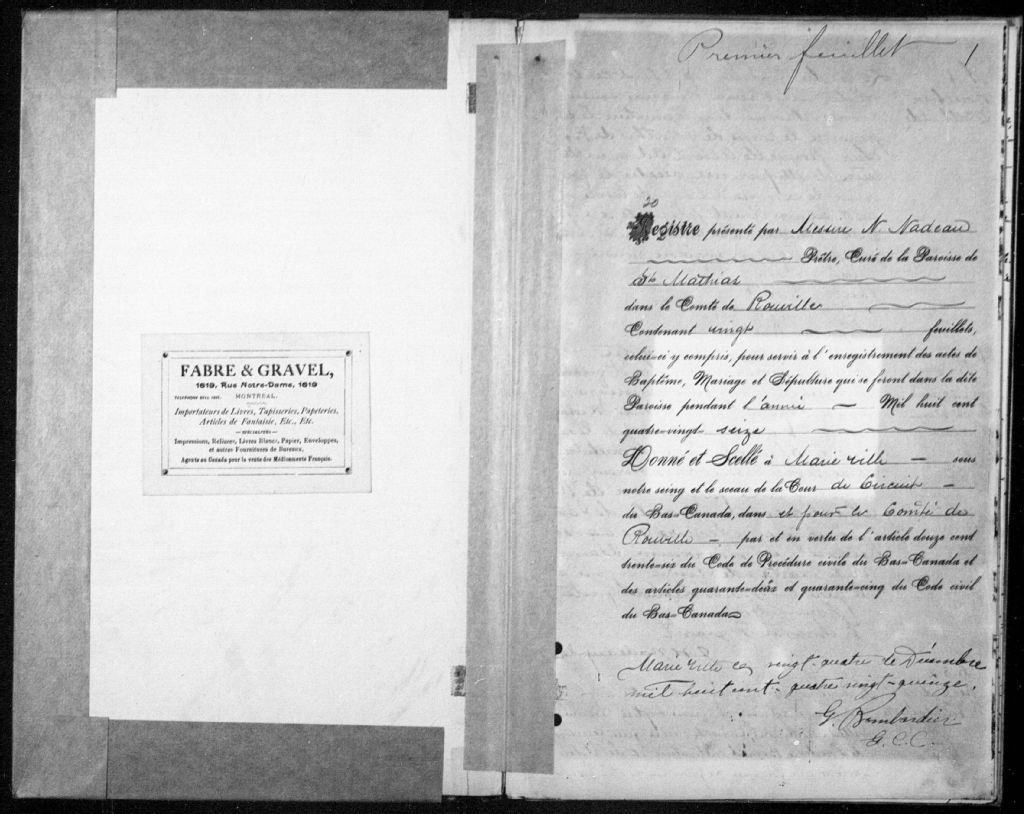 FABRE & GRAVEL,
1619, Rue Notre-Dame, 1619
MONTREAL.
Importateurs de Livres, Tapisseries, Papeteries,
Articles de Fantaisie, Etc., Etc.
—SPÉCIALITÉS—
Impressions, Reliures, Livres Blancs, Papier, Enveloppes,
et autres Fournitures de Bureaux,
Agents au Canada pour la vente des Médicaments Français.
Premier feuillet 1
20
Registre présenté par Messire N. Nadeau
Prêtre, Curé de la Paroisse de
St Mathias
dans le Comté de Rouville
Contenant vingt feuillets,
celui-ci y compris, pour servir à l'enregistrement des actes de
Baptême, Mariage et Sépulture qui se feront dans la dite
Paroisse pendant l'année — Mil huit cent
quatre-vingt seize
Donné et Scellé à Marieville — sous
notre seing et le sceau de la Cour de Circuit —
du Bas-Canada, dans et pour le Comté de
Rouville — par et en vertu de l'article douze cent
trente-six du Code de Procédure civile du Bas-Canada et
des articles quarante-deux et quarante-cinq du Code civil
du Bas-Canada
Marieville ce vingt-quatre de Décembre
mil huit cent-quatre vingt-quinze.
G. Bombardier
G. C. C.